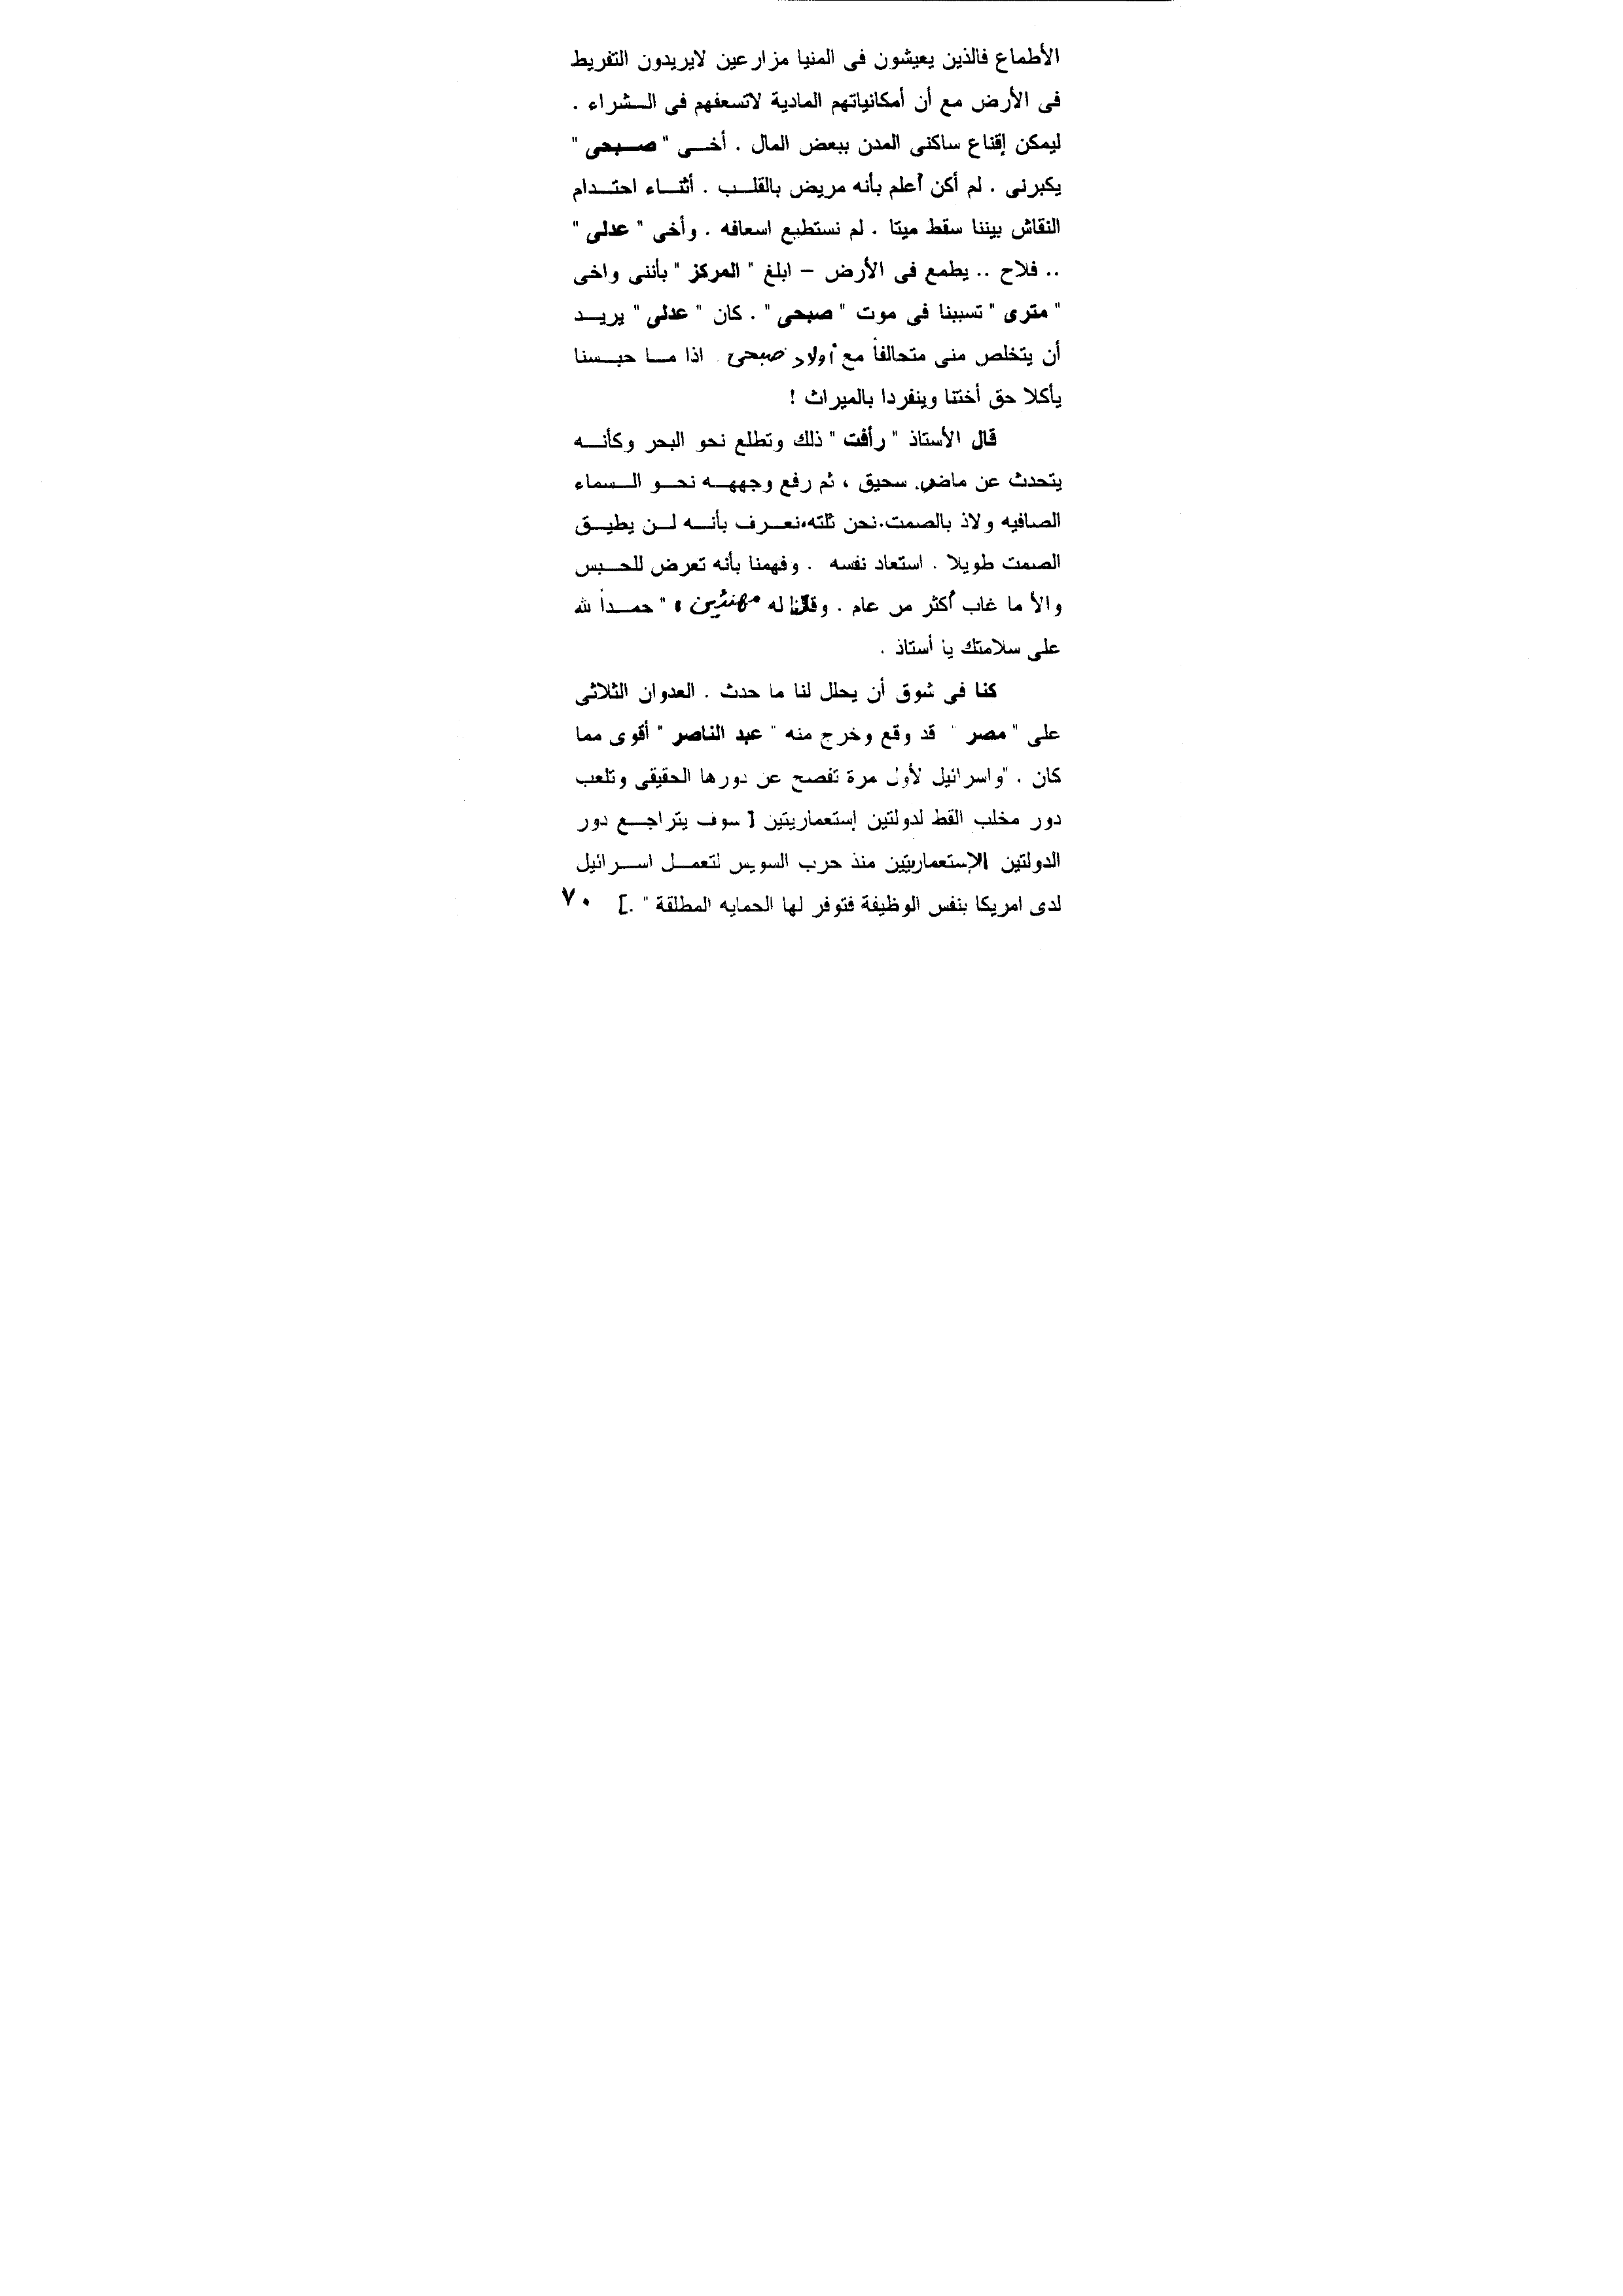 الأطماع فالذين يعيشون فى المنيا مزارعين لايريدون التفريط
فى الأرض مع أن أمكانياتهم المادية لاتسعفهم فى الشراء .
ليمكن إقناع ساكنى المدن ببعض المال . أخى " صبحى "
يكبرنى . لم أكن أعلم بأنه مريض بالقلب . أثناء احتدام
النقاش بيننا سقط ميتا . لم نستطيع اسعافه . وأخى " عدلى "
.. فلاح .. يطمع فى الأرض – ابلغ " المركز " بأننى واخى
" مترى " تسببنا فى موت " صبحى " . كان " عدلى " يريد
أن يتخلص منى متحالفاً مع أولاد صبحى . اذا ما حبسنا
يأكلا حق أختنا وينفردا بالميراث !
قال الأستاذ " رأفت " ذلك وتطلع نحو البحر وكأنه
يتحدث عن ماضى سحيق ، ثم رفع وجهه نحو السماء
الصافيه ولاذ بالصمت . نحن ثلته ، نعرف بأنه لن يطيق
الصمت طويلا . استعاد نفسه . وفهمنا بأنه تعرض للحبس
والأ ما غاب أكثر من عام . وقلنا له مهنئين : " حمداً لله
على سلامتك يا أستاذ .
كنا فى شوق أن يحلل لنا ما حدث . العدوان الثلاثى
على " مصر " قد وقع وخرج منه " عبد الناصر " أقوى مما
كان . "واسرائيل لأول مرة تفصح عن دورها الحقيقى وتلعب
دور مخلب القط لدولتين إستعماريتين [ سوف يتراجع دور
الدولتين الإستعماريتين منذ حرب السويس لتعمل اسرائيل
لدى امريكا بنفس الوظيفة فتوفر لها الحمايه المطلقة " .]
٧٠